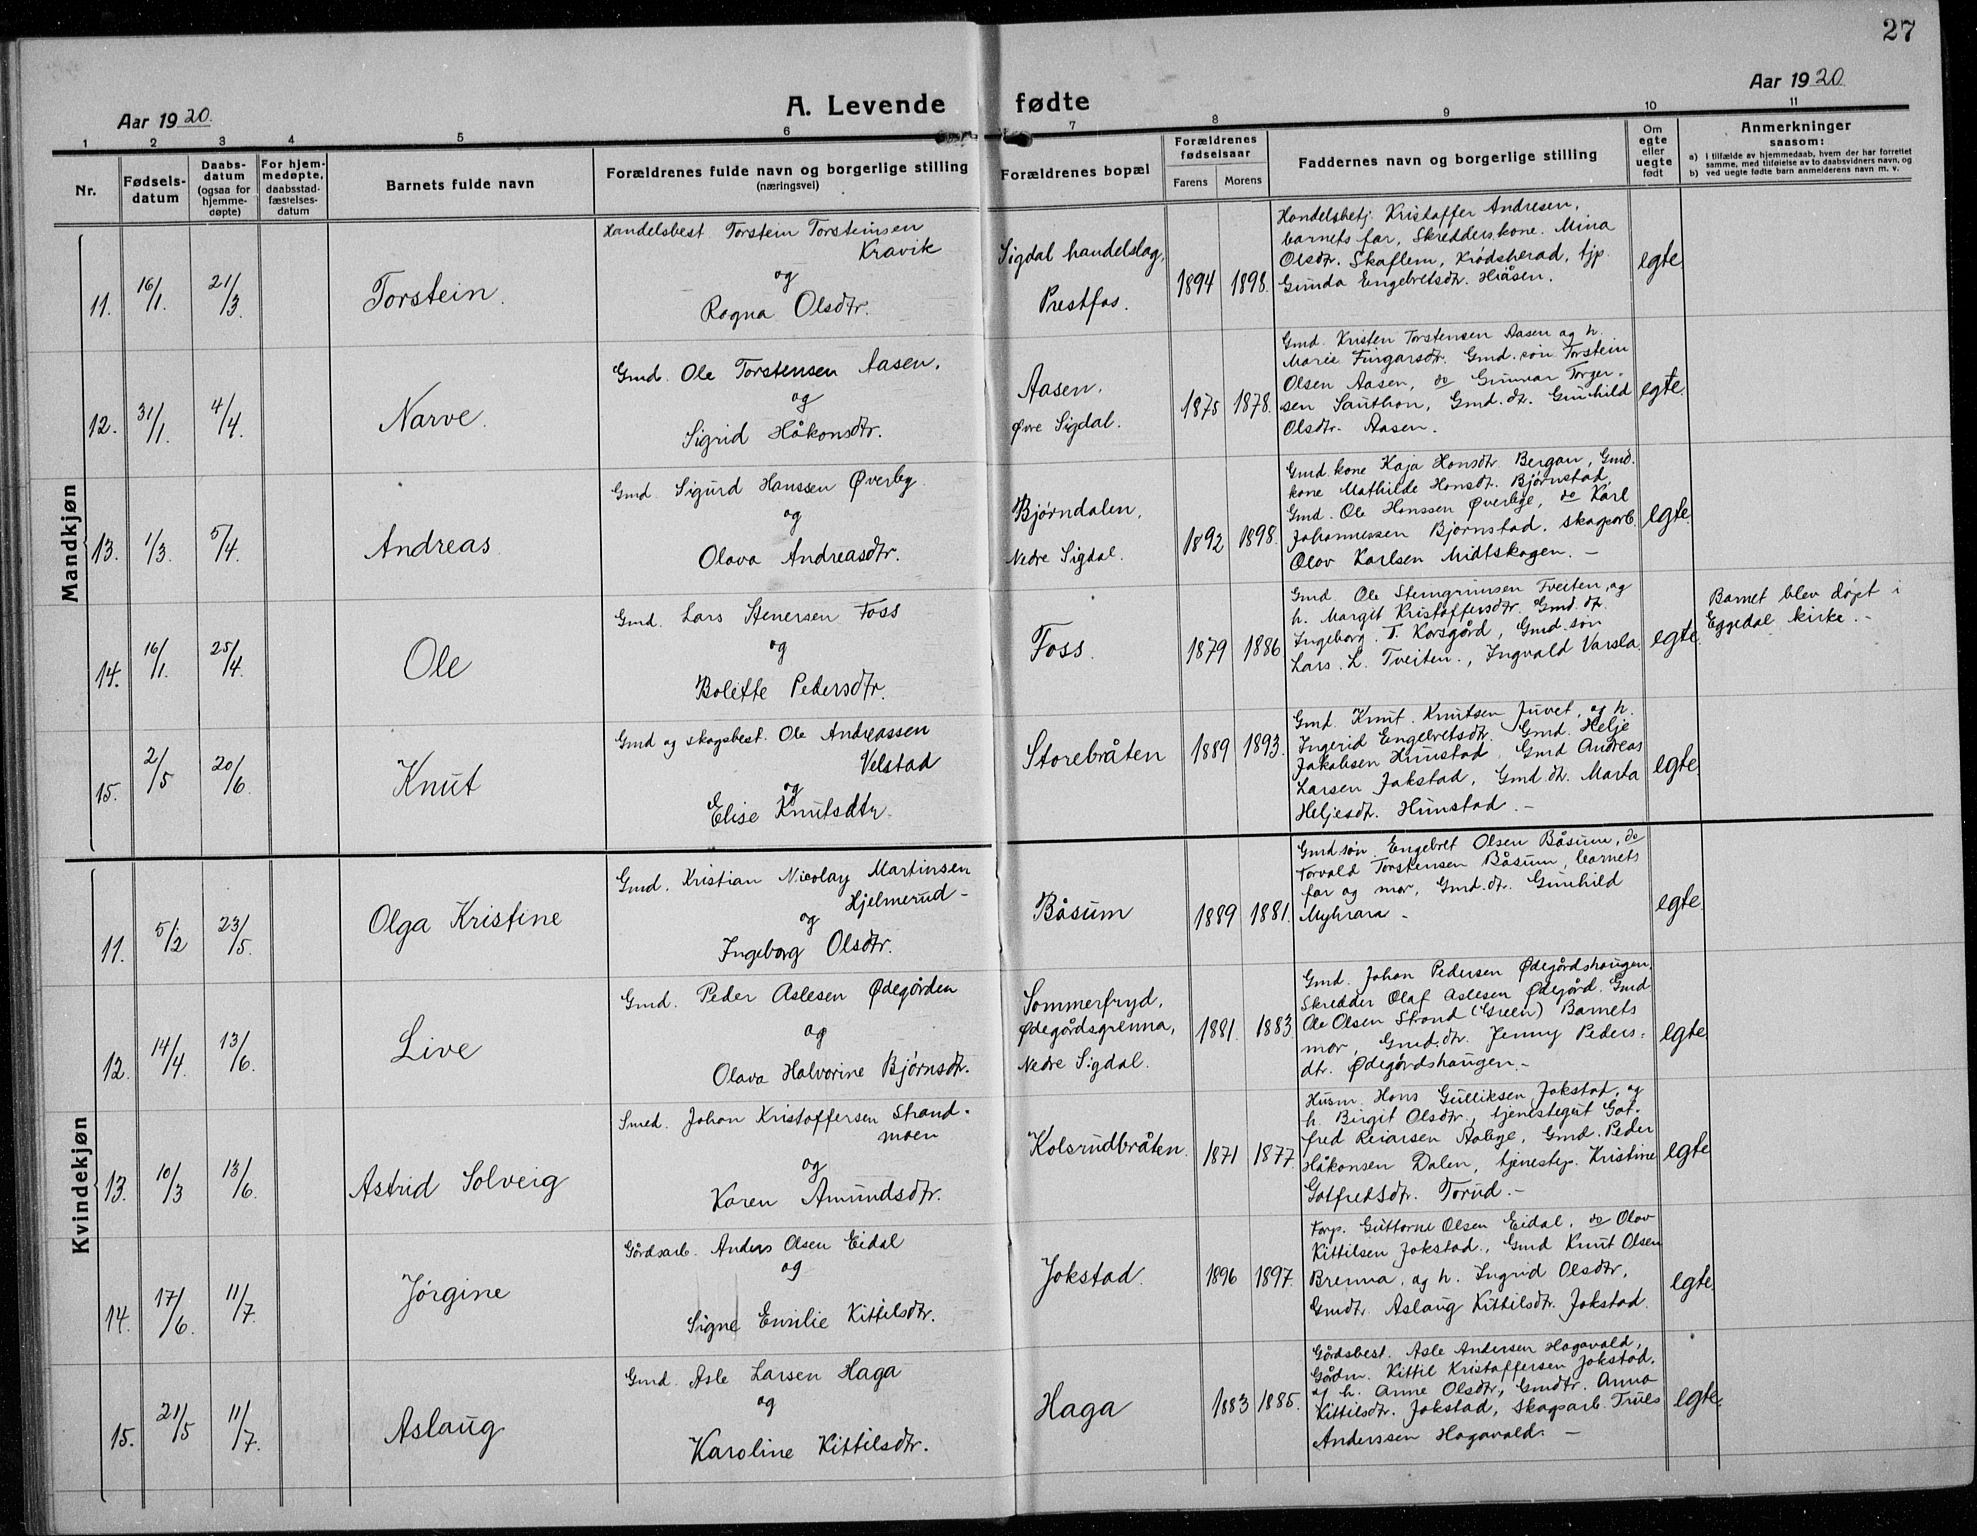 27
Aar 1920.
A. Levende fødte
Aar 1920
1 2 3 4 5 6 7 8 9 10 11
Nr.
Fødsels-
datum
Daabs-
datum
(ogsaa for
hjemme-
døpte)
For hjem-
medøpte,
daabsstad-
fæstelses-
datum
Barnets fulde navn
Forældrenes fulde navn og borgerlige stilling
(næringsvei)
Forældrenes bopæl
Forældrenes
fødselsaar
Farens Morens
Faddernes navn og borgerlige stilling
Om
egte
eller
uegte
født
Anmerkninger
saasom:
a) i tilfælde av hjemmedaab, hvem der har forrettet
samme, med tilføielse av to daabsvidners navn, og
b) ved uegte fødte barn anmelderens navn m. v.
Mandkjøn
11. 16/1. 21/3. Torstein.
Handelsbest. Torstein Torsteinsen
Kravik
og
Ragna Olsdtr.
Sigdal handelslag,
Prestfos.
1894 1898.
Handelsbetj. Kristoffer Andresen,
barnets far, Skredderskone. Mina
Olsdtr. Skaflem, Krødsherad, tjp.
Gunda Engebretsdtr. Hråsen.
egte
12. 31/1. 4/4. Narve.
Gmd. Ole Torstensen Aasen.
og
Sigrid Håkonsdtr.
Aasen,
Øvre Sigdal.
1875 1878.
Gmd. Kristen Torstensen Aasen og h.
Marie Fingarsdtr. Gmd. søn Torstein
Olsen Aasen, do Gunnar Torger-
sen Sauthon, Gmd. dt. Gunhild
Olsdtr. Aasen.
egte
13. 1/3. 5/4. Andreas.
Gmd. Sigurd Hanssen Øverby
og
Olava Andreasdtr.
Bjørndalen,
Nedre Sigdal.
1892 1898.
Gmd. kone Kaja Hansdtr. Bergan, Gmd.
kone Mathilde Hansdt. Bjørnstad,
Gmd. Ole Hanssen Øverbye, do Karl
Johannessen Bjørnstad. skogsarb.
Olav Karlsen Midtskogen. —
egte
14. 16/1. 25/4. Ole
Gmd. Lars Stenersen Foss
og
Bolette Pedersdtr.
Foss.
1879 1886
Gmd. Ole Steingrimsen Tveiten, og
h. Margit Kristoffersdtr. Gmd. dt.
Ingeborg. T. Korsgård, Gmd. søn
Lars. L. Tveiten., Ingvald Varsla.
egte
Barnet blev døpt i
Eggedal kirke. -
15. 2/5 20/6. Knut
Gmd og skogsbest. Ole Andreassen
Velstad
og
Elise Knutsdtr.
Storebråten
1889 1893.
Gmd. Knut. Knutsen Juvet, og h.
Ingerid Engebretsdtr. Gmd. Helje
Jakobsen Hunstad, Gmd Andreas
Larsen Jokstad, Gmd dt. Marta
Heljesdt. Hunstad. —
egte.
Kvindekjøn
11. 5/2 23/5. Olga Kristine
Gmd. Kristian Nicolay Martinsen
Hjelmerud -
og
Ingeborg Olsdtr.
Båsum
1889 1881.
Gmd søn. Engebret Olsen Båsum, do
Torvald Torstensen Båsum, barnets
far og mor, Gmd. dt. Gunhild
Myhrara -
egte.
12. 14/4 13/6. Live
Gmd. Peder Aslesen Ødegården
og
Olava Halvorine Bjørnsdtr.
Sommerfryd,
Ødegårdsgrenna,
Nedre Sigdal.
1881. 1883
Gmd. Johan Pedersen Ødegårdshaugen.
Skredder Olaf Aslesen Ødegård. Gmd
Ole Olsen Strand (Green) Barnets
mor, Gmd. dtr. Jenny Peders-
dtr. Ødegårdshaugen. -
egte
13. 10/3 13/6. Astrid Solveig
Smed. Johan Kristoffersen Strand-
moen
og
Karen Amundsdtr.
Kolsrudbråten.
1871 1877.
Husm. Hans Gulliksen Jokstad, og
h. Birgit Olsdtr., tjenestegut Got-
fred Reiarsen Aabye, Gmd. Peder
Håkonsen Dalen, tjenestep. Kristine
Gotfredsdtr. Torud. -
egte
14. 17/6. 11/7. Jørgine
Gårdsarb. Anders Olsen Eidal
og
Signe Emilie Kittilsdtr.
Jokstad.
1896 1897.
Forp. Guttorm Olsen Eidal, do Olav
Kittilsen Jokstad., Gmd Knut Olsen
Brenna, og h. Ingrid Olsdtr,
Gmdtr. Aslaug Kittilsdtr. Jokstad.
egte
15. 21/5 11/7. Aslaug
Gmd. Asle Larsen Haga
og
Karoline Kittilsdtr.
Haga
1883 1885.
Gårdsbest. Asle Andersen Hagavald,
Gårdm. Kittil Kristoffersen Jokstad.
og h. Anne Olsdtr, Gmdtr. Anna
Kittilsdtr. Jokstad, Skogsarb. Truls
Anderssen Hagavald. —
egte.